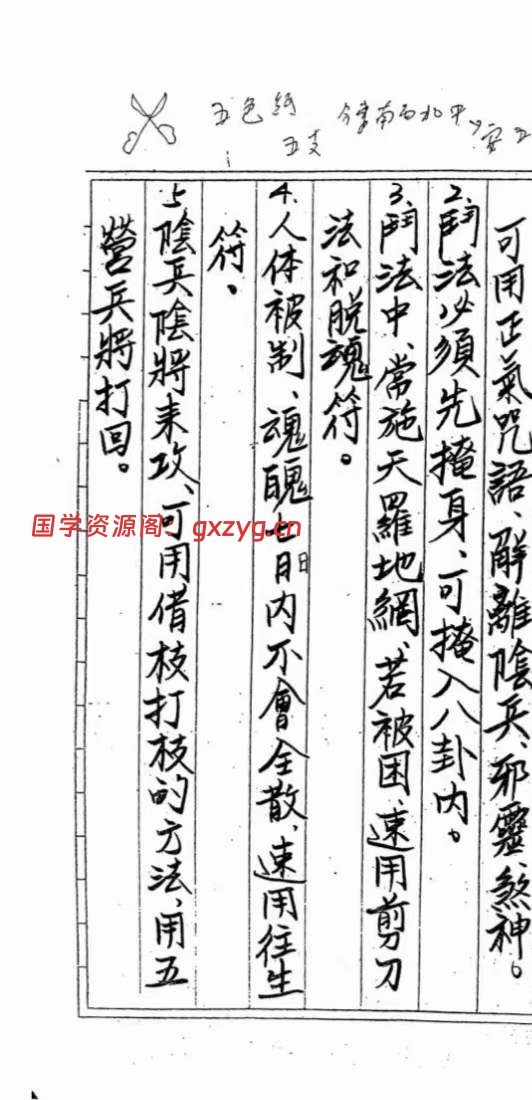 五色紙
五支
東南西北中
安五
可用正氣咒語、解離陰兵、邪靈煞神。
2、鬥法必須先掩身、可掩入八卦內。
3、鬥法中、常施天羅地網、若被困、速用剪刀
法和脱魂符。
4、人体被制、魂魄七日内不會全散、速用往生
符。
5、陰兵陰將来攻、可用借枝打枝的方法、用五
營兵將打回。
国学资源阁：gxzyg.cn